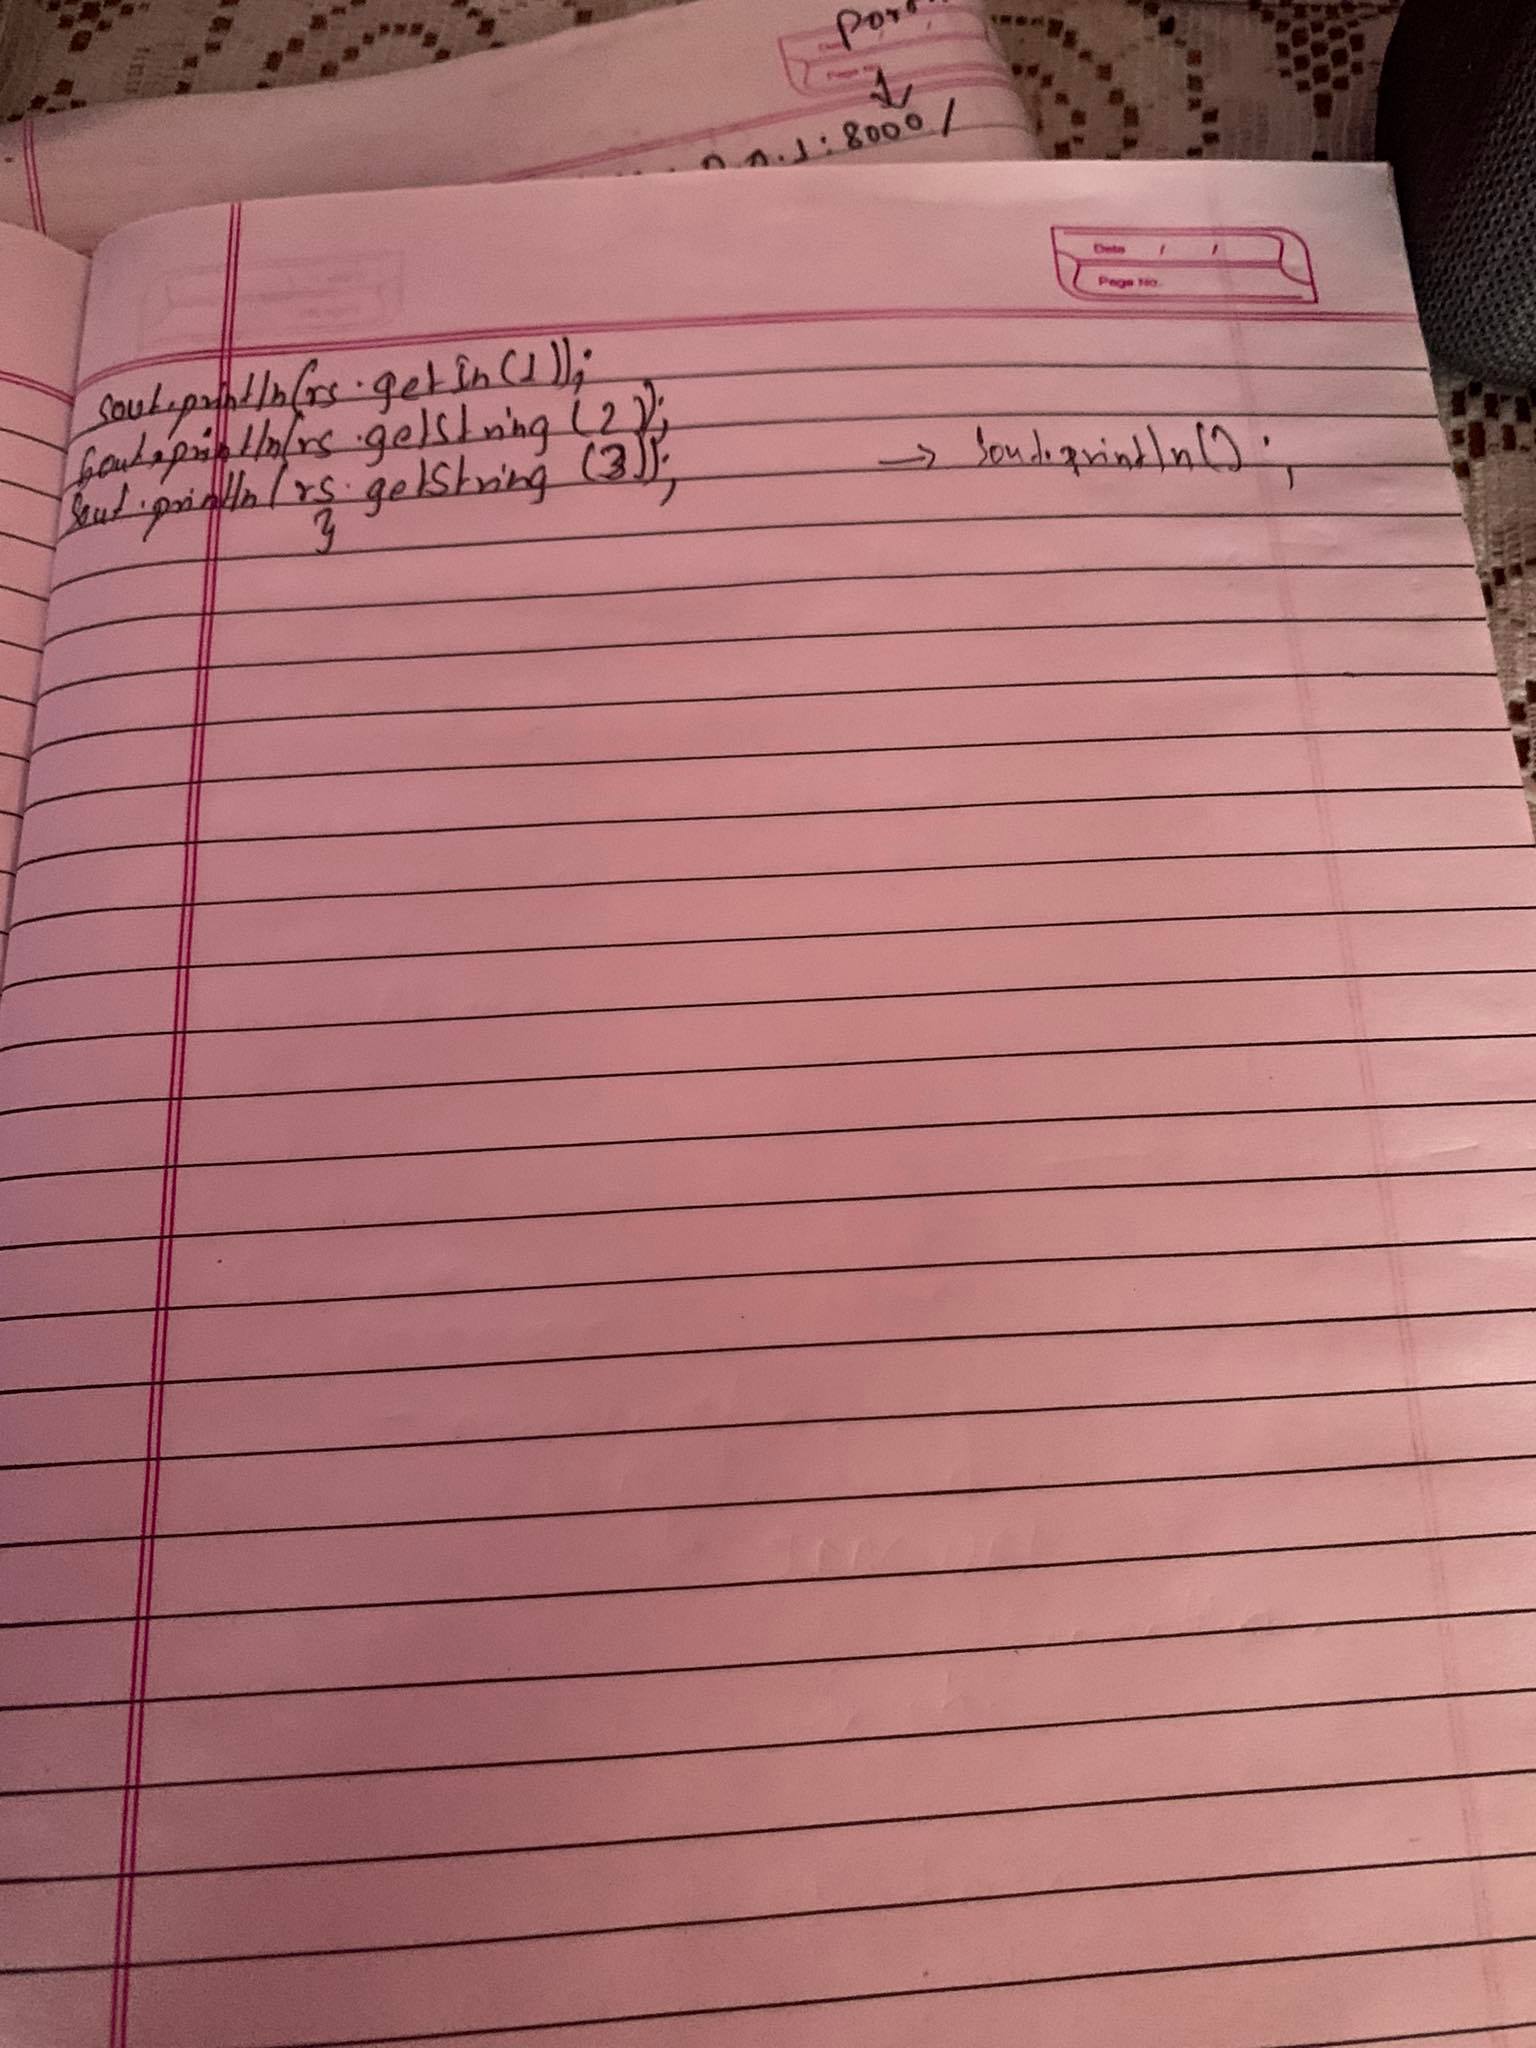 Port
:8000/
Date / /
Page No.
Sout.println(rs.getIn(1));
Sout.println(rs.getString(2));
Sout.println(rs.getString(3)); → Sout.println();
}